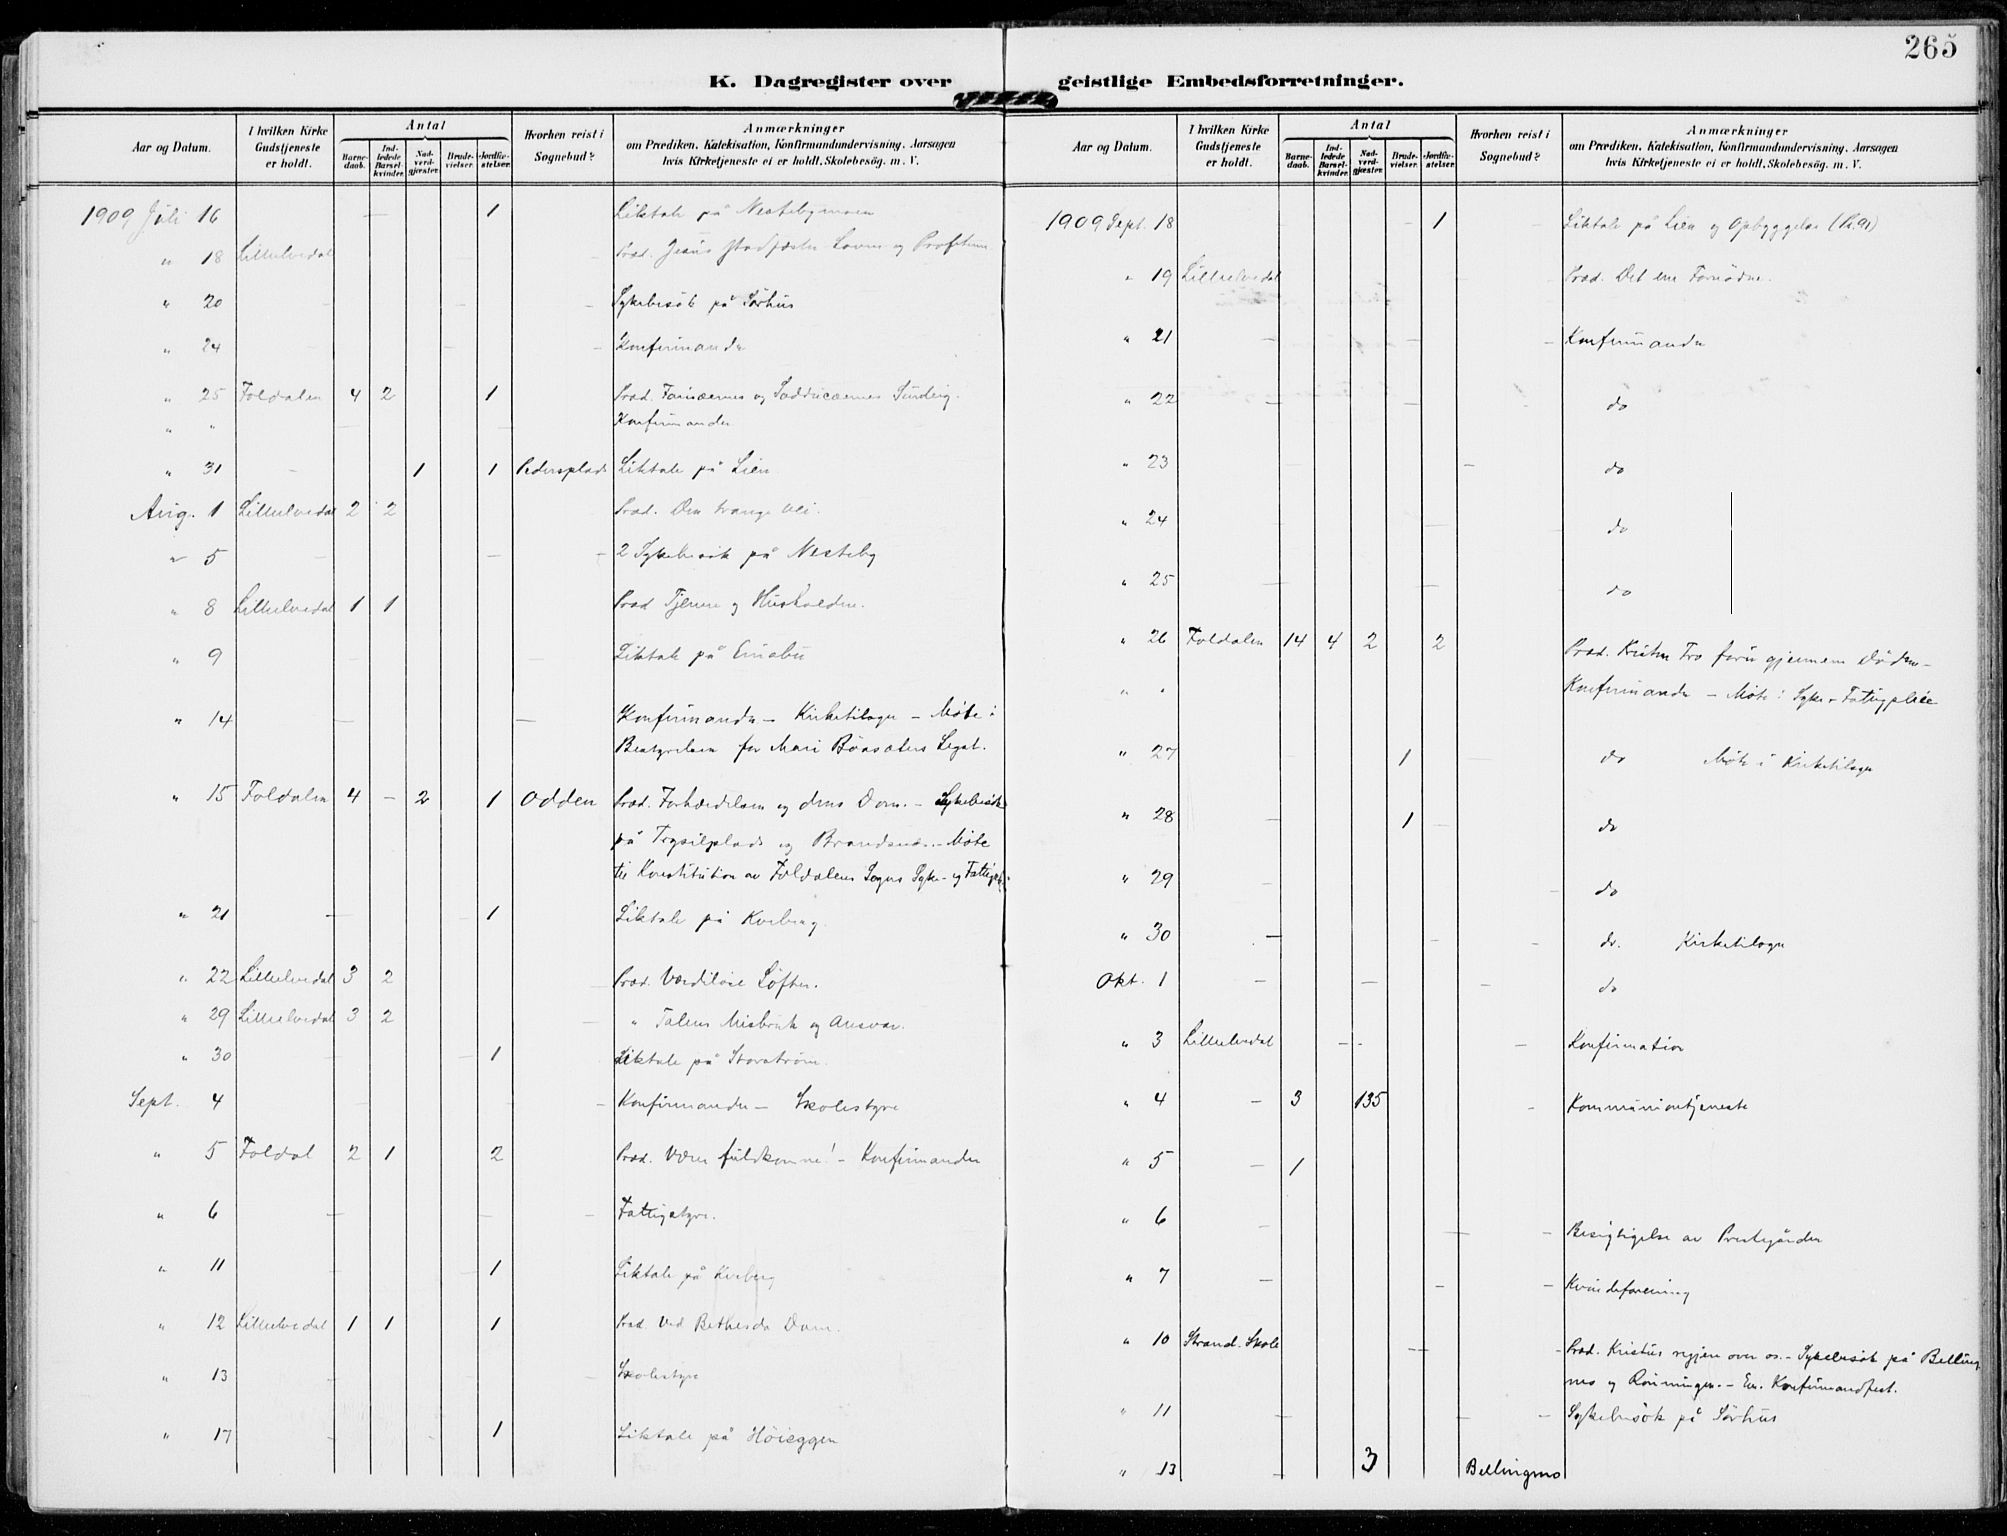 265
K. Dagregister over geistlige Embedsforretninger.
Aar og Datum. I hvilken Kirke Gudstjeneste er holdt. Antal Barnedaab. Indledede Barselkvinder. Nadverdgjæster. Brudevielser. Jordfæstelser. Hvorhen reist i Sognebud? Anmærkninger om Prædiken, Katekisation, Konfirmandundervisning, Aarsagen hvis Kirketjeneste ei er holdt, Skolebesög. m. V.
1909 Juli 16 — 1 Liktale på Nestebymoen
" 18 Lillelvedal Præd. Jesus stadfæster Loven og Profeterne
" 20 Sykebesök på Sörhus
" 24 Konfirmander
" 25 Foldalen 4 2 1 Præd. Farisæernes og Sadducæernes Surdeig.
" " Konfirmander
" 31 1 1 Pedersplads Liktale på Lien
Aug. 1 Lillelvedal 2 2 Præd. Den trange Vei.
" 5 2 Sykebesök på Nesteby
" 8 Lillelvedal 1 1 Præd. Tjenere og Husholdere.
" 9 Liktale på Einabu
" 14 Konfirmander – Kirketilsyn – Möte i
Bestyrelsen for Mari Legat.
" 15 Foldalen 4 – 2 1 Odden Præd. Forhærdelsen og dens Dom. – Sykebesök
på Trysilplads og Brandsnes. – Möte
til Konstitution av Foldalens Sogns Syke- og Fattigpl.
" 21 1 Liktale på Kveberg
" 22 Lillelvedal 3 2 Præd. Værdilöse Löfter.
" 29 Lillelvedal 3 2 " Talens Misbruk og Ansvar.
" 30 1 Liktale på Storström.
Sept. 4 Konfirmander – Skolestyre
" 5 Foldal 2 1 2 Præd. Værer fuldkomne! – Konfirmander
" 6 Fattigstyre.
" 11 1 Liktale på Kveberg
" 12 Lillelvedal 1 1 1 Præd. Ved Bethesda Dam.
" 13 Skolestyre
" 17 1 Liktale på Höieggen
Aar og Datum. I hvilken Kirke Gudstjeneste er holdt. Antal Barnedaab. Indledede Barselkvinder. Nadverdgjæster. Brudevielser. Jordfæstelser. Hvorhen reist i Sognebud? Anmærkninger om Prædiken, Katekisation, Konfirmandundervisning, Aarsagen hvis Kirketjeneste ei er holdt, Skolebesög. m. V.
1909 Sept. 18 1 Liktale på Lien og Opbyggelse
" 19 Lillelvedal Præd. Det ene Fornödne.
" 21 Konfirmander
" 22 do
" 23 do
" 24 do
" 25 do
" 26 Foldalen 14 4 2 2 Præd. Kristen Tro gjennem Döden –
" " Konfirmander – Möte i Syke- Fattigpleie
" 27 1 do Möte i Kirketilsyn
" 28 1 do
" 29 do
" 30 do. Kirketilsyn
Okt. 1 do
" 3 Lillelvedal Konfirmation
" 4 – 3 135 Kommuniontjeneste
" 5 – 1
" 6 Besigtigelse av Prestegården
" 7 Kvindeforening
" 10 Strand. Skole Præd. Kristus regjere over os. – Sykebesök på Belling-
mo og Rönningen. – Em. Konfirmandfest.
" 11 Sykebesök på Sörhus
" 13 3 Bellingmo